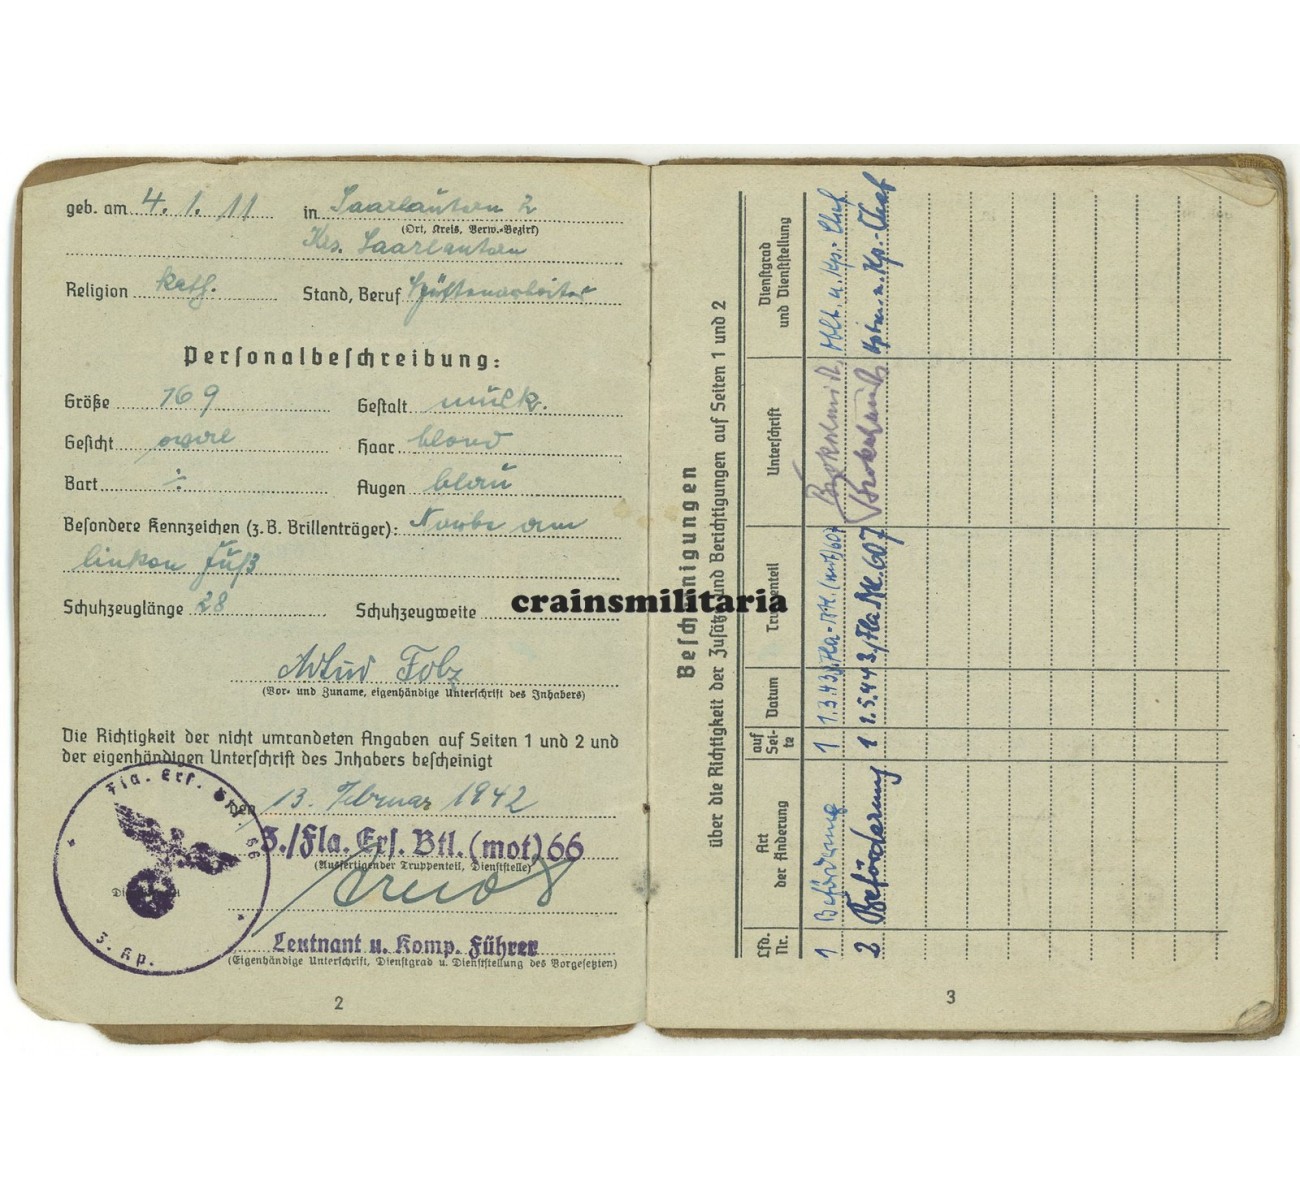 geb. am 4. 1. 11 in Saarlautern 2
(Ort, Kreis, Verw.-Bezirk)
Krs. Saarlautern
Religion kath. Stand, Beruf Hüttenarbeiter
Personalbeschreibung:
Größe 169 Gestalt unters.
Gesicht oval Haar blond
Bart ÷ Augen blau
Besondere Kennzeichen (z. B. Brillenträger): Narbe am
linken Fuß
Schuhzeuglänge 28 Schuhzeugweite
Artur Folz
(Vor- und Zuname, eigenhändige Unterschrift des Inhabers)
Die Richtigkeit der nicht umrandeten Angaben auf Seiten 1 und 2 und
der eigenhändigen Unterschrift des Inhabers bescheinigt
den 13. Februar 1942
3./Fla. Ers. Btl. (mot) 66
(Ausfertigender Truppenteil, Dienststelle)
Leutnant u. Komp. Führer
(Eigenhändige Unterschrift, Dienstgrad u. Dienststellung des Vorgesetzten)
Fla. Ers. Btl. 66
3. Kp.
2
crainsmilitaria
Bescheinigungen
über die Richtigkeit der Zusätze und Berichtigungen auf Seiten 1 und 2
Lfd. Nr. Art der Änderung auf Seite Datum Truppenteil Unterschrift Dienstgrad und Dienststellung
1 Beförderung 1 1.3.43 Fla-Btl. (mot) 607 Oblt. u. Kp.-Chef
2 Beförderung 1 1.5.44 3./Fla Btl. 607 Hptm. u. Kp.-Chef
3